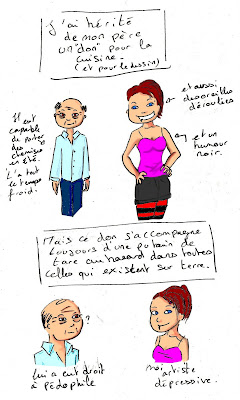 J'ai hérité
de mon père
un "don" pour la
cuisine.
(et pour le dessin)
Il est
capable
de porter
des
chemises
en été.
L'a tout
le temps
froid.
et aussi
des oreilles
décollées
et un
humour
noir.
Mais ce don s'accompagne
toujours d'une putain de
tare au hasard dans toutes
celles qui existent sur terre.
?
lui a eut droit
à pédophile
moi
artiste
dépressive.